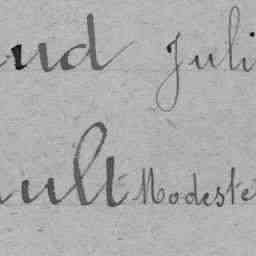 ud Juli
ult Modeste